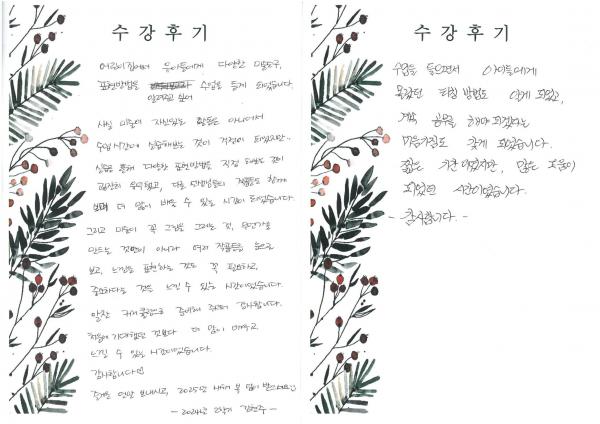 수강후기
어린이집에서 유아들에게 다양한 미술도구,
표현방법을 수업을 듣게 되었습니다.
알려주고 싶어
사실 미술에 자신있는 활동은 아니어서
수업시간에 실습해보는 것이 걱정이 되었지만..
실습을 통해 다양한 표현방법을 직접 해보는 것이
굉장히 유익했고, 다른 선생님들의 작품도 함께
보며 더 많이 배울 수 있는 시간이 되었습니다.
그리고 미술이 꼭 그림을 그리는 것, 무언가를
만드는 것만이 아니라 여러 작품들을 눈으로
보고, 느낌을 표현하는 것도 꼭 필요하고,
중요하다는 것을 느낄 수 있는 시간이었습니다.
알찬 커리큘럼으로 준비해 주셔서 감사합니다.
처음에 기대했던 것보다 더 많이 배우고
느낄 수 있는 시간이었습니다.
감사합니다
즐거운 연말 보내시고, 2025년 새해 복 많이 받으세요
- 2024년 2학기 김현주 -
수강후기
수업을 들으면서 아이들에게
몰랐던 방법도 알게 되었고,
계속 해야 되겠다는
마음가짐도 갖게 되었습니다.
짧은 기간이었지만, 많은 도움이
되었던 시간이었습니다.
- 감사합니다. -